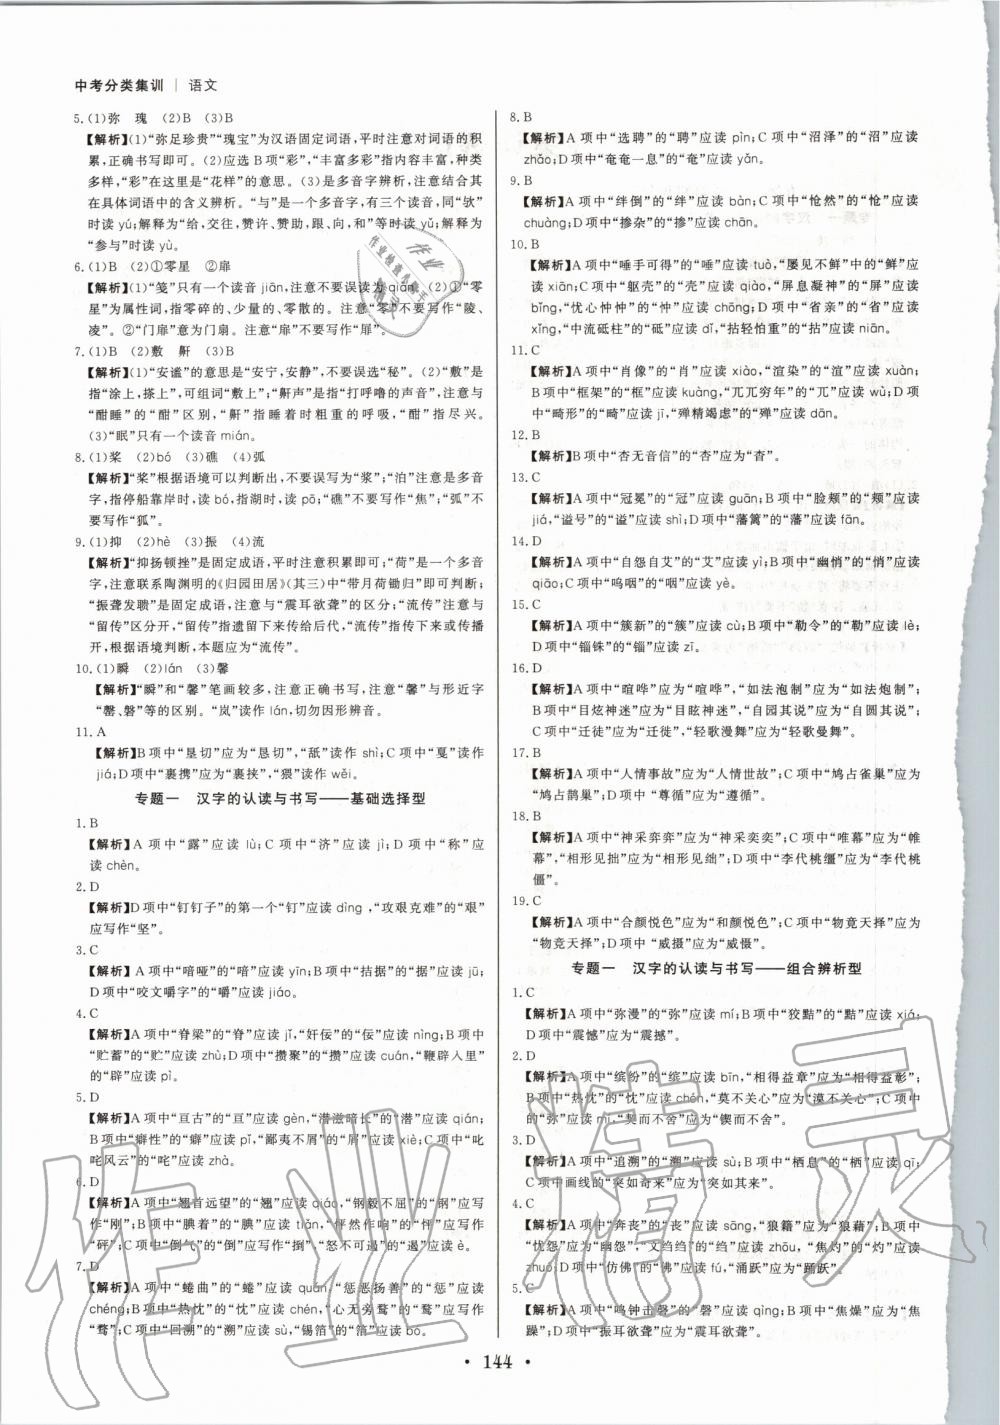 中考分类集训 | 语文
5. (1)弥 瑰 (2)B (3)B
【解析】(1)“弥足珍贵”“瑰宝”为汉语固定词语,平时注意对词语的积
累,正确书写即可。(2)应选 B 项“彩”,“丰富多彩”指内容丰富,种类
多样,“彩”在这里是“花样”的意思。(3)是多音字辨析,注意结合其
在具体词语中的含义辨析。“与”是一个多音字,有三个读音,同“欤”
时读 yú;解释为“给,交往,赞许、赞助,跟、向,和”等时读 yǔ;解释为
“参与”时读 yù。
6. (1)B (2)①零星 ②扉
【解析】(1)“笺”只有一个读音 jiān,注意不要误读为 qiān。(2)①“零
星”为属性词,指零碎的、少量的、零散的。注意“零”不要写作“陵、
凌”。②“门扉”意为门扇。注意“扉”不要写作“屝”。
7. (1)B (2)敷 鼾 (3)B
【解析】(1)“安谧”的意思是“安宁,安静”,不要误选“秘”。(2)“敷”是
指“涂上,搽上”,可组词“敷上”,“鼾声”是指“打呼噜的声音”,注意与
“酣睡”的“酣”区别,“鼾”指睡着时粗重的呼吸,“酣”指尽兴。
(3)“眠”只有一个读音 mián。
8. (1)桨 (2)bó (3)礁 (4)弧
【解析】“桨”根据语境可以判断出,不要误写为“浆”;“泊”是多音
字,指停船靠岸时,读 bó,指湖时,读 pō;“礁”不要写作“焦”;“弧”不
要写作“狐”。
9. (1)抑 (2)hè (3)振 (4)流
【解析】“抑扬顿挫”是固定成语,平时注意积累即可;“荷”是一个多音
字,注意联系陶渊明的《归园田居》(其三)中“带月荷锄归”即可判断;
“振聋发聩”是固定成语,注意与“震耳欲聋”的区分;“流传”注意与
“留传”区分开,“留传”指遗留下来传给后代,“流传”指传下来或传播
开,根据语境判断,本题应为“流传”。
10. (1)瞬 (2)lán (3)馨
【解析】“瞬”和“馨”笔画较多,注意正确书写,注意“馨”与形近字
“罄、磬”等的区别。“岚”读作 lán,切勿因形辨音。
11. A
【解析】B 项中“垦切”应为“恳切”,“舐”读作 shì;C 项中“戛”读作
jiá;D 项中“裹携”应为“裹挟”,“猥”读作 wěi。
专题一 汉字的认读与书写——基础选择型
1. B
【解析】A 项中“露”应读 lù;C 项中“济”应读 jì;D 项中“称”应
读 chèn。
2. D
【解析】D 项中“钉钉子”的第一个“钉”应读 dìng,“攻艰克难”的“艰”
应写作“坚”。
3. C
【解析】A 项中“喑哑”的“喑”应读 yīn;B 项中“拮据”的“据”应读 jū;
D 项中“咬文嚼字”的“嚼”应读 jiáo。
4. C
【解析】A 项中“脊梁”的“脊”应读 jǐ,“奸佞”的“佞”应读 nìng;B 项中
“贮蓄”的“贮”应读 zhù;D 项中“攒聚”的“攒”应读 cuán,“鞭辟入里”
的“辟”应读 pì。
5. D
【解析】A 项中“亘古”的“亘”应读 gèn,“潜滋暗长”的“潜”应读 qián;
B 项中“癖性”的“癖”应读 pǐ,“鄙夷不屑”的“屑”应读 xiè;C 项中“叱
咤风云”的“咤”应读 zhà。
6. D
【解析】A 项中“翘首远望”的“翘”应读 qiáo,“钢毅不屈”的“钢”应写
作“刚”;B 项中“腆着”的“腆”应读 tiǎn,“怦然作响”的“怦”应写作
“砰”;C 项中“倒飞”的“倒”应写作“捯”,“恶不可遏”的“遏”应读 è。
7. D
【解析】A 项中“蜷曲”的“蜷”应读 quán,“惩恶扬善”的“惩”应读
chéng;B 项中“热忱”的“忱”应读 chén,“心无旁鹜”的“鹜”应写作
“骛”;C 项中“回溯”的“溯”应读 sù,“锡箔”的“箔”应读 bó。
8. B
【解析】A 项中“选聘”的“聘”应读 pìn;C 项中“沼泽”的“沼”应读
zhǎo;D 项中“奄奄一息”的“奄”应读 yǎn。
9. B
【解析】A 项中“绊倒”的“绊”应读 bàn;C 项中“怆然”的“怆”应读
chuàng;D 项中“掺杂”的“掺”应读 chān。
10. B
【解析】A 项中“唾手可得”的“唾”应读 tuò,“屡见不鲜”中的“鲜”应
读 xiān;C 项中“躯壳”的“壳”应读 qiào,“屏息凝神”的“屏”应读
bǐng,“忧心忡忡”的“忡”应读 chōng;D 项中“省亲”的“省”应读
xǐng,“中流砥柱”的“砥”应读 dǐ,“拈轻怕重”的“拈”应读 niān。
11. C
【解析】A 项中“肖像”的“肖”应读 xiào,“渲染”的“渲”应读 xuàn;
B 项中“框架”的“框”应读 kuàng,“兀兀穷年”的“兀”应读 wù;D 项
中“畸形”的“畸”应读 jī,“殚精竭虑”的“殚”应读 dān。
12. B
【解析】B 项中“杳无音信”的“杳”应为“杳”。
13. C
【解析】A 项中“冠冕”的“冠”应读 guān;B 项中“脸颊”的“颊”应读
jiá,“谥号”的“谥”应读 shì;D 项中“藩篱”的“藩”应读 fān。
14. D
【解析】A 项中“自怨自艾”的“艾”应读 yì;B 项中“幽悄”的“悄”应读
qiǎo;C 项中“呜咽”的“咽”应读 yè。
15. C
【解析】A 项中“簇新”的“簇”应读 cù;B 项中“勒令”的“勒”应读 lè;
D 项中“锱铢”的“锱”应读 zī。
16. D
【解析】A 项中“喧哗”应为“喧哗”,“如法泡制”应为“如法炮制”;
B 项中“目炫神迷”应为“目眩神迷”,“自园其说”应为“自圆其说”;
C 项中“迁徒”应为“迁徙”,“轻歌漫舞”应为“轻歌曼舞”。
17. B
【解析】A 项中“人情事故”应为“人情世故”;C 项中“鸠占雀巢”应为
“鸠占鹊巢”;D 项中“尊循”应为“遵循”。
18. B
【解析】A 项中“神采弈弈”应为“神采奕奕”;C 项中“唯幕”应为“帷
幕”,“相形见拙”应为“相形见绌”;D 项中“李代桃缰”应为“李代桃
僵”。
19. C
【解析】A 项中“合颜悦色”应为“和颜悦色”;C 项中“物竟天择”应为
“物竞天择”;D 项中“威摄”应为“威慑”。
专题一 汉字的认读与书写——组合辨析型
1. C
【解析】A 项中“弥漫”的“弥”应读 mí;B 项中“狡黠”的“黠”应读 xiá;
D 项中“震憾”应为“震撼”。
2. D
【解析】A 项中“缤纷”的“缤”应读 bīn,“相得益章”应为“相得益彰”;
B 项中“热忱”的“忱”应读 chén,“莫不关心”应为“漠不关心”;C 项中
的“弥”应读 mí,“契而不舍”应为“锲而不舍”。
3. D
【解析】A 项中“追溯”的“溯”应读 sù;B 项中“栖息”的“栖”应读 qī;
C 项中画线的“突如奇来”应为“突如其来”。
4. C
【解析】A 项中“奔丧”的“丧”应读 sāng,“狼籍”应为“狼藉”;B 项中
“忧怨”应为“幽怨”,“文绉绉”的“绉”应读 zhōu,“焦灼”的“灼”应读
zhuó;D 项中“仿佛”的“佛”应读 fú,“涌跃”应为“踊跃”。
5. C
【解析】A 项中“鸣钟击磬”的“磬”应读 qìng;B 项中“焦燥”应为“焦
躁”;D 项中“振耳欲聋”应为“震耳欲聋”。
• 144 •
作业精灵
作业
作业检查小助手
精灵